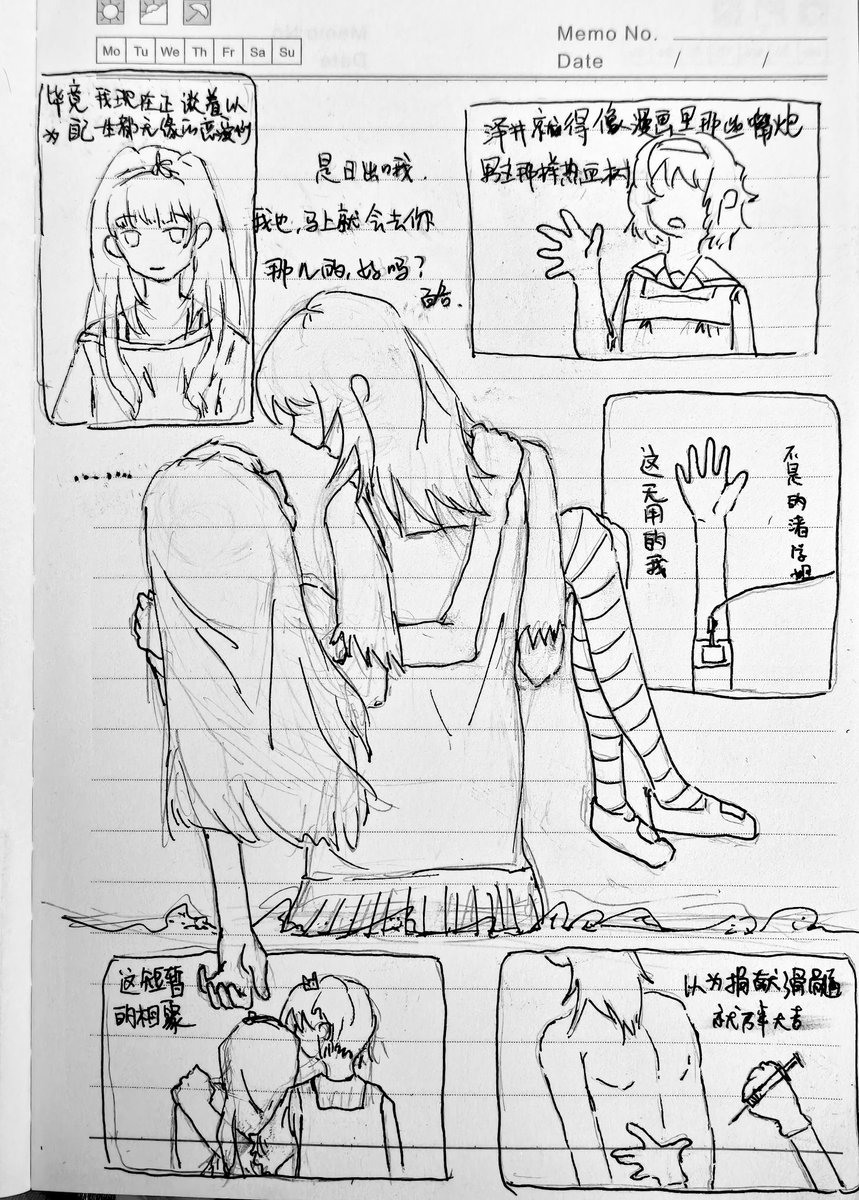 Memo No.
Mo Tu We Th Fr Sa Su
Date / /
毕竟 我现在正谈着以
为自己一生都无缘的恋爱
是日出哦.
我也,马上就会去你
那儿的,好吗?
百合.
泽井 像漫画里那些嘴炮
男主那样热血
不是的渚学姐
这无用的我
.......
这短暂
的相聚
以为捐献骨髓
就万事大吉